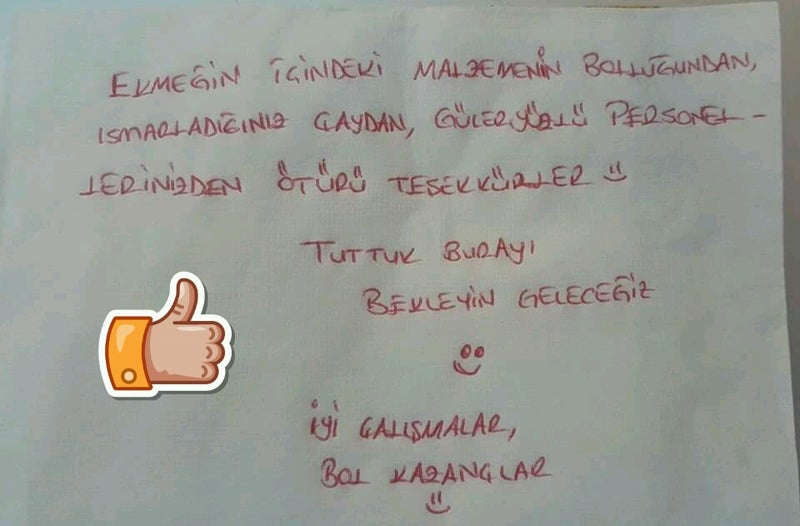 EKMEĞİN İÇİNDEKİ MALZEMENİN BOLLUĞUNDAN,
ISMARLADIĞINIZ ÇAYDAN, GÜLERYÜZLÜ PERSONEL-
LERİNİZDEN ÖTÜRÜ TEŞEKKÜRLER
TUTTUK BURAYI
BEKLEYİN GELECEĞİZ
İYİ ÇALIŞMALAR,
BOL KAZANÇLAR